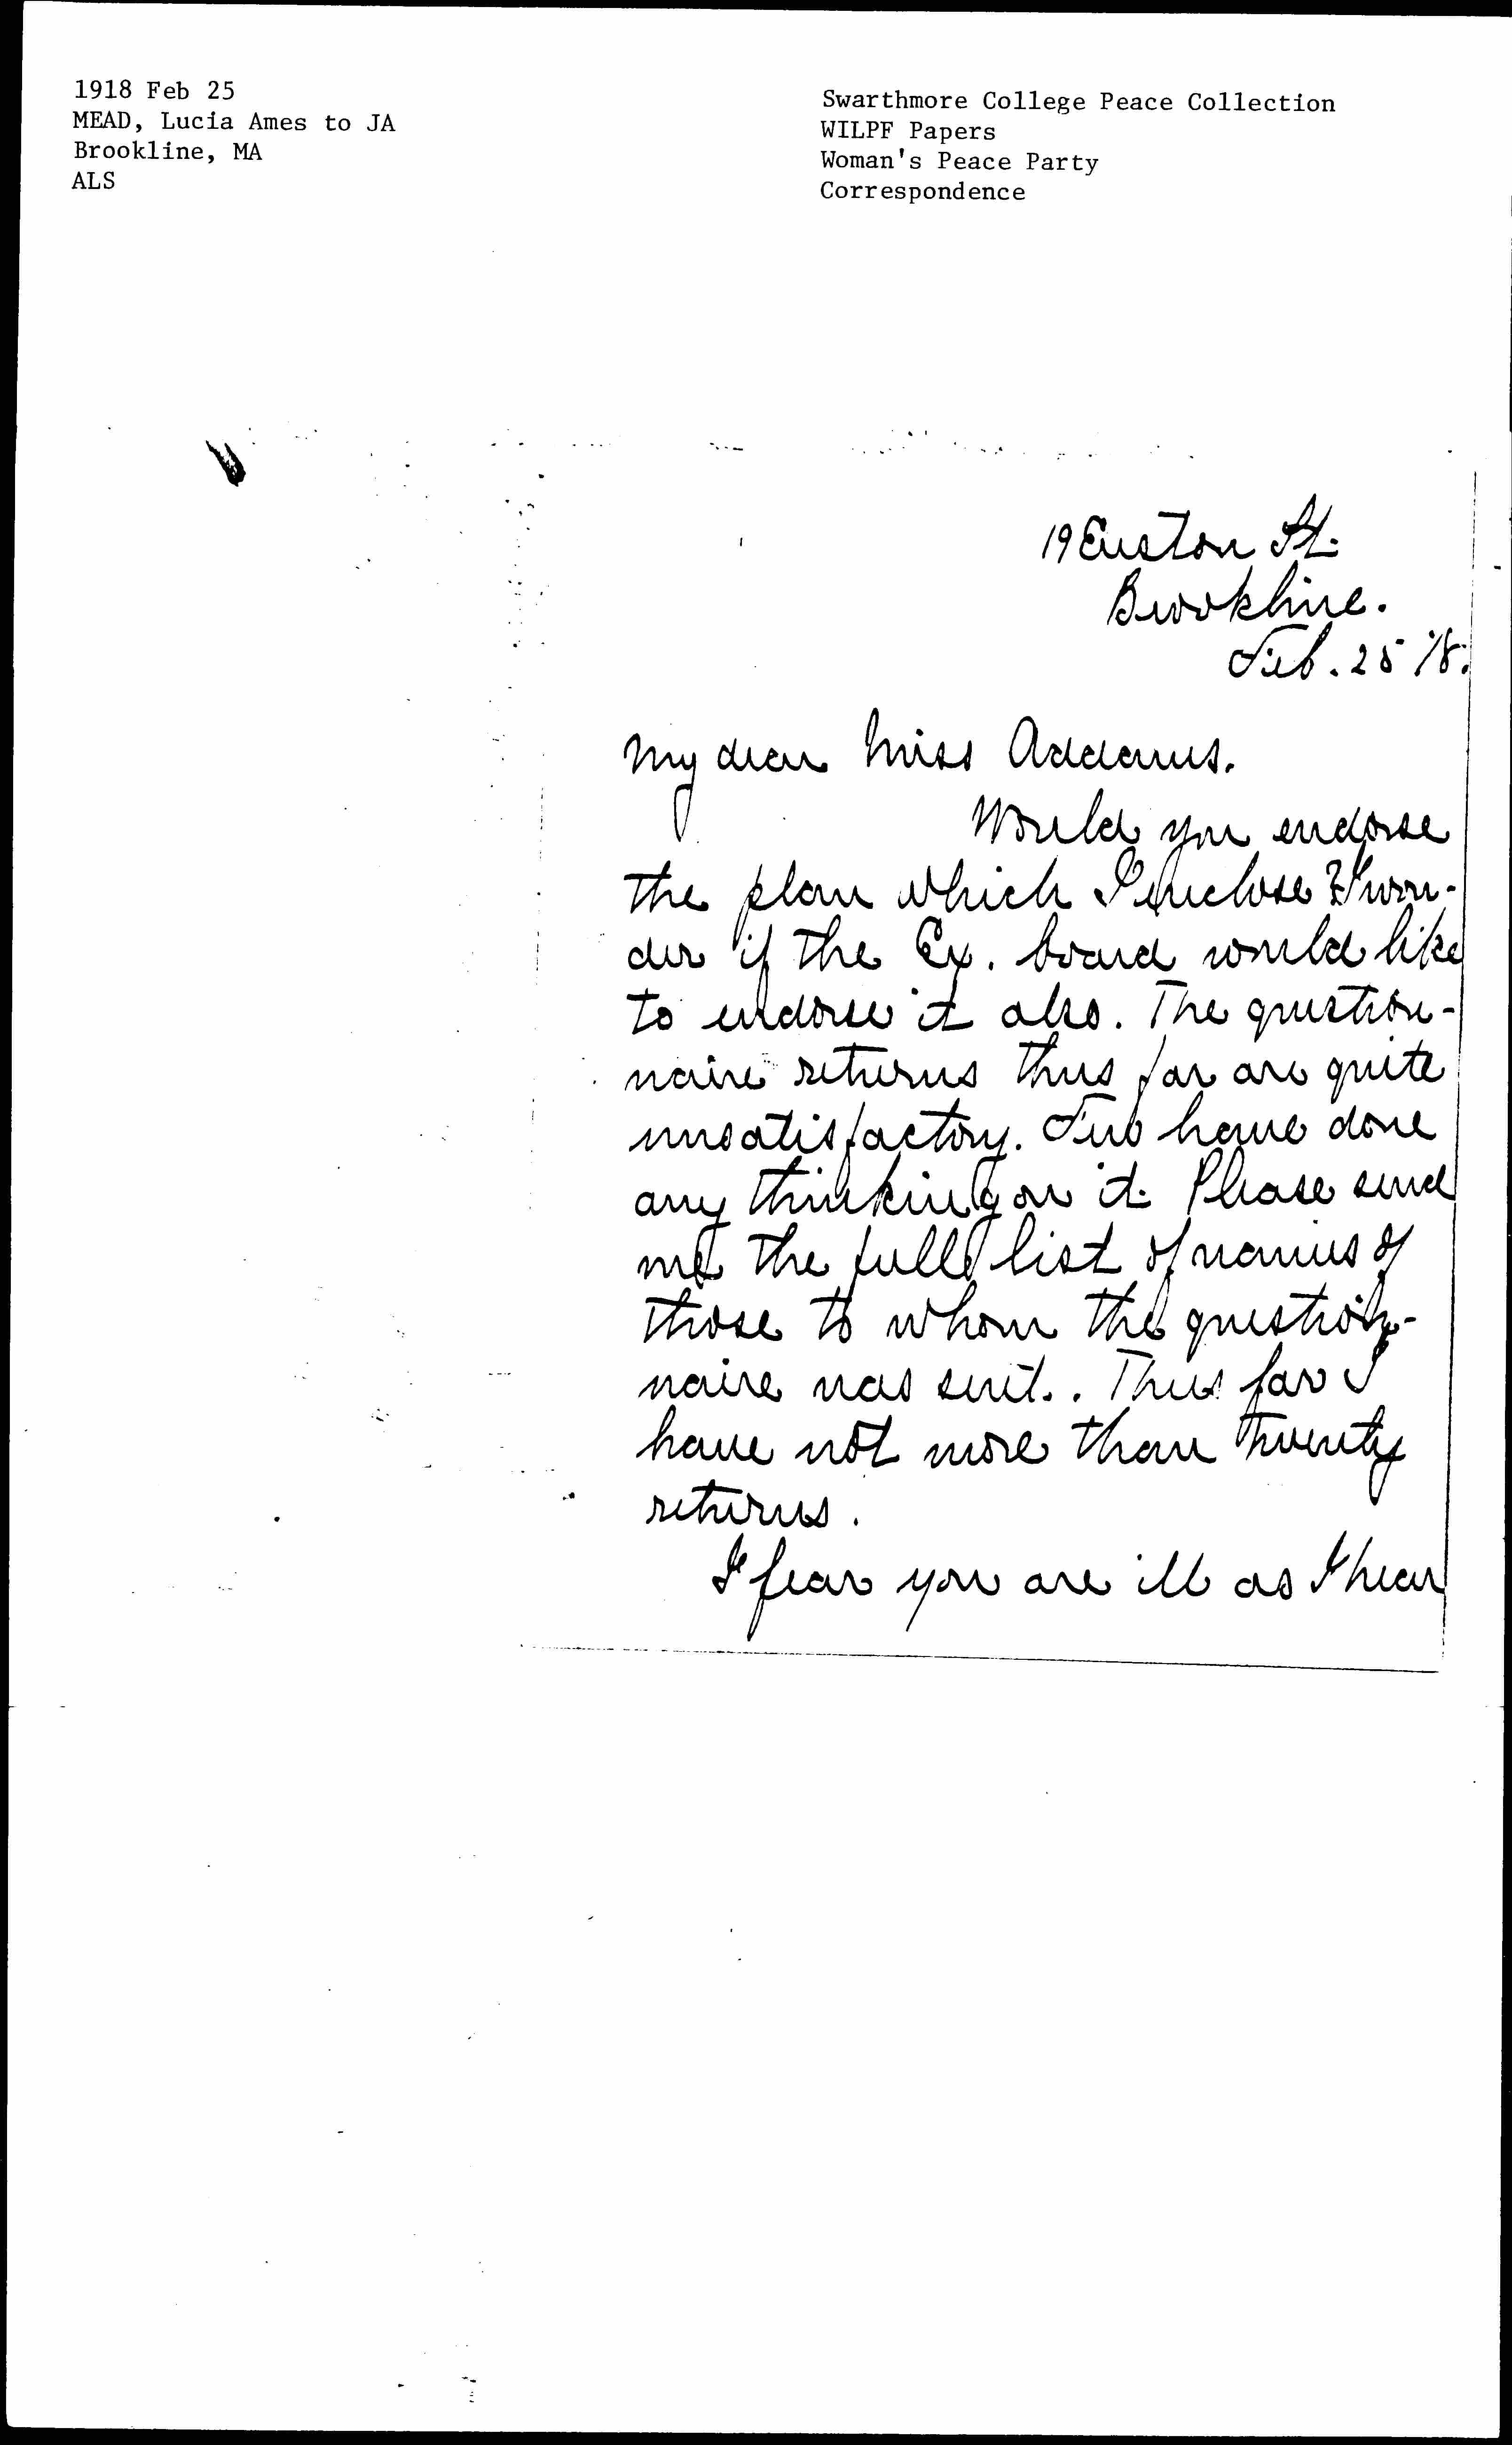 1918 Feb 25
MEAD, Lucia Ames to JA
Brookline, MA
ALS
Swarthmore College Peace Collection
WILPF Papers
Woman's Peace Party
Correspondence
19 Euston St.
Brookline.
Feb. 25 '18.
My dear Miss Addams.
Would you endorse
the plan which I enclose? I won-
der if the Ex. board would like
to endorse it also. The question-
naire returns thus far are quite
unsatisfactory. Few have done
any thinking on it. Please send
me the full list of names of
those to whom the question-
naire was sent. Thus far I
have not more than twenty
returns.
I fear you are ill as I hear